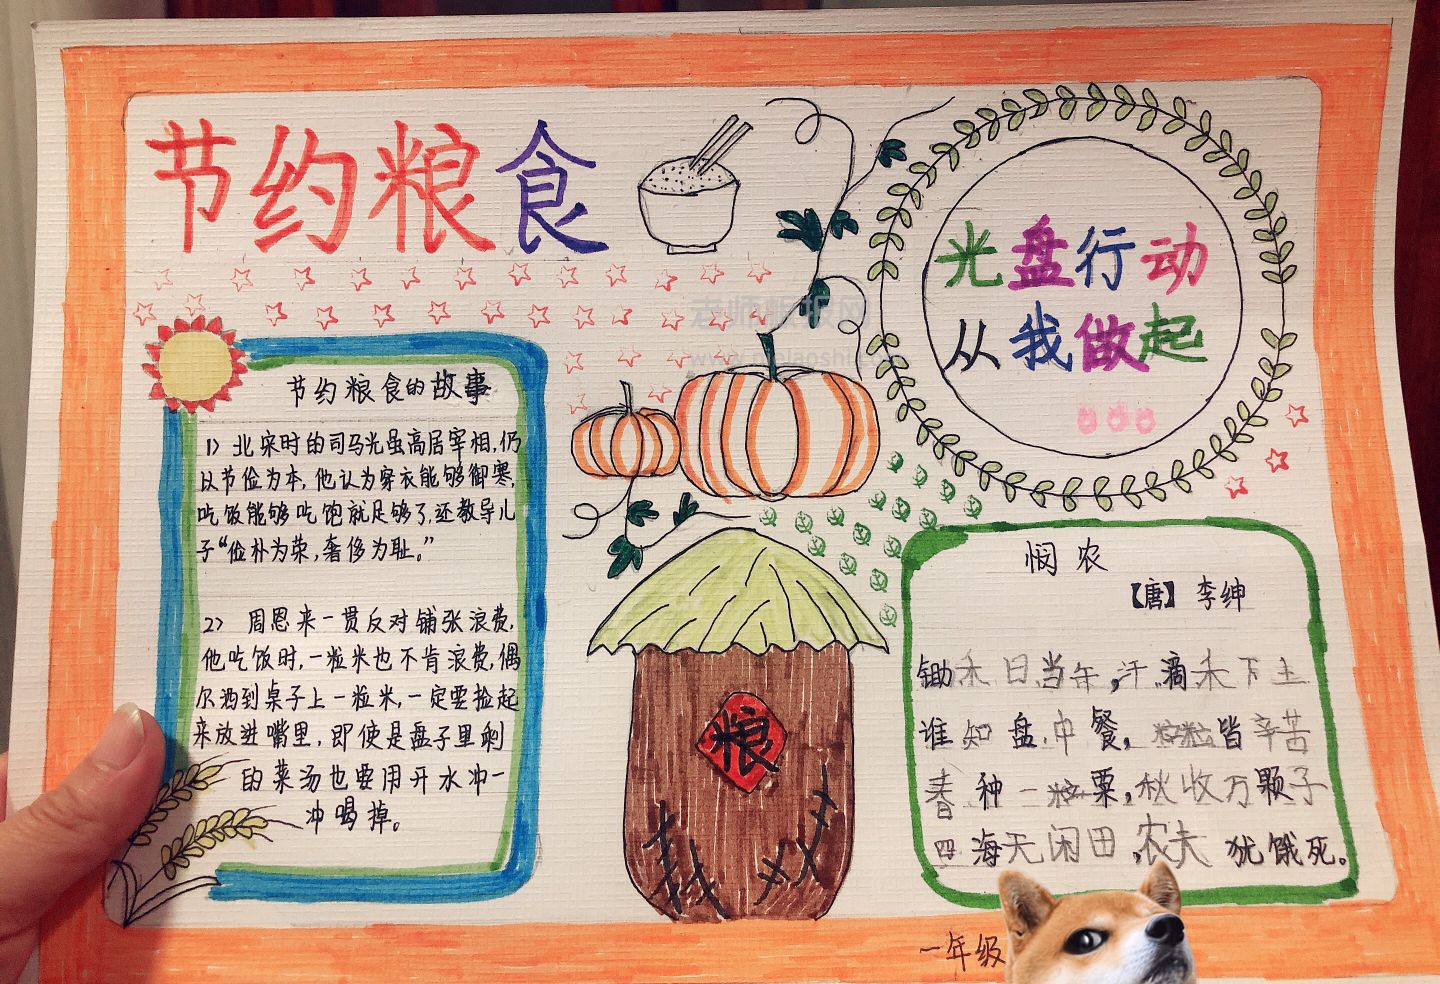 节约粮食
光盘行动
从我做起
节约粮食的故事
1) 北宋时的司马光虽高居宰相,仍
以节俭为本,他认为穿衣能够御寒,
吃饭能够吃饱就足够了,还教导儿
子“俭朴为荣,奢侈为耻。”
2) 周恩来一贯反对铺张浪费,
他吃饭时,一粒米也不肯浪费,偶
尔洒到桌子上一粒米,一定要捡起
来放进嘴里,即使是盘子里剩
的菜汤也要用开水冲一
冲喝掉。
粮
悯农
【唐】 李绅
锄禾日当午,汗滴禾下土
谁知盘中餐,粒粒皆辛苦
春种一粒粟,秋收万颗子
四海无闲田,农夫犹饿死。
一年级
老师板报网